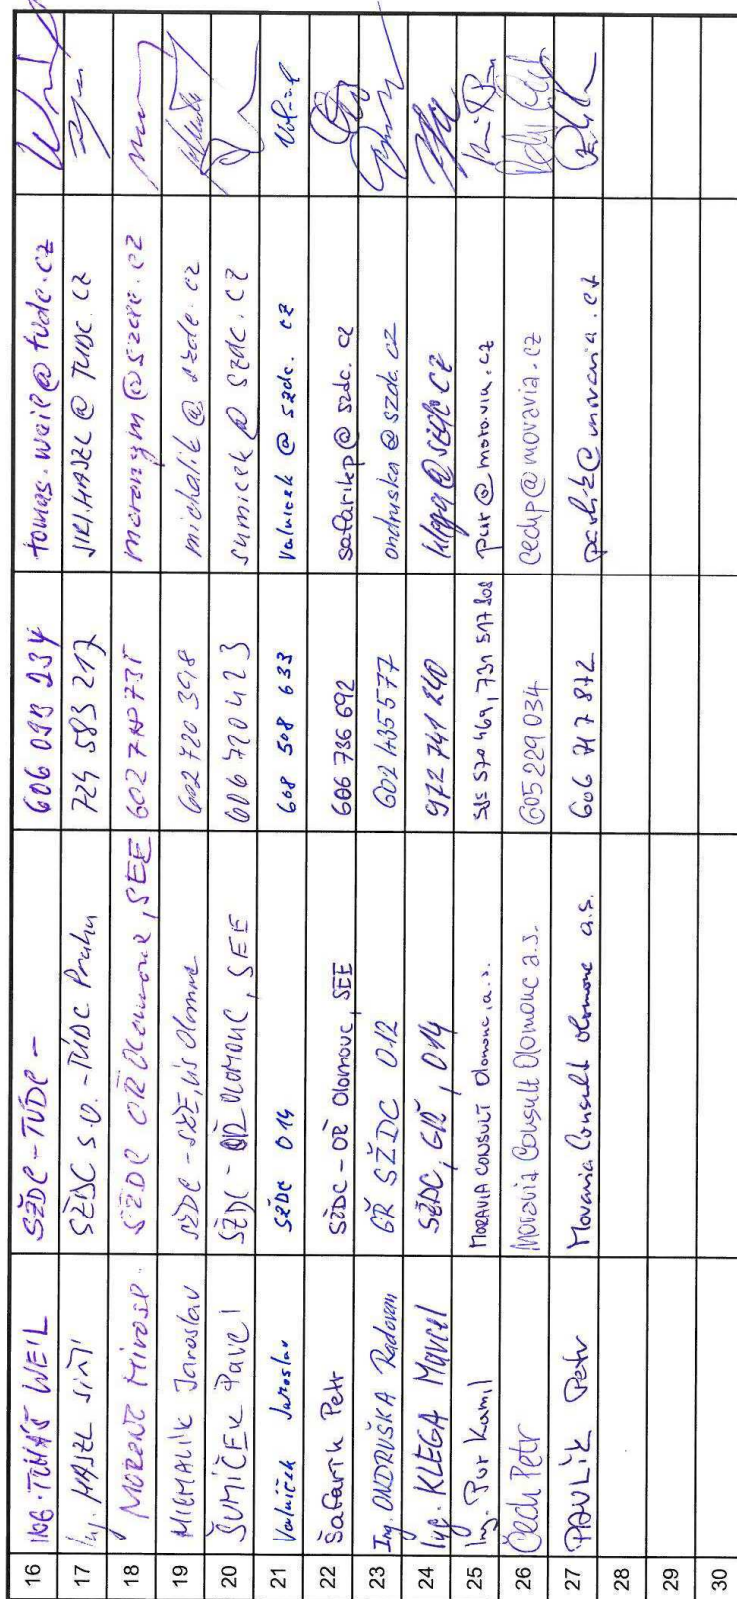 16 ING. TOMÁŠ WEIL SŽDC-TÚDC - 606 093 234 tomas.weil@tudc.cz
17 Ing. HAJZL JIŘÍ SŽDC s.o. -TÚDC Praha 724 583 217 JIRI.HAJZL@TUDC.CZ
18 SŽDC OŘ Olomouc, SEE 602
19 MICHALÍK Jaroslav SŽDC - SŽE, Olomouc 602 720 398 michalik@szdc.cz
20 ŠUMÍČEK Pavel SŽDC - OŘ OLOMOUC, SEE 606 720 423 sumicek@szdc.cz
21 Valníček Jaroslav SŽDC 014 608 508 633 valnicek@szdc.cz
22 Šafařík Petr SŽDC - OŘ Olomouc, SEE 606 736 692 safarikp@szdc.cz
23 Ing. ONDRUŠKA Radovan GŘ SŽDC 012 602 435577 ondruska@szdc.cz
24 Ing. KLEGA Marcel SŽDC, GŘ, 014 972 741 240 klega@szdc.cz
25 Ing. Pur Kamil MORAVIA CONSULT Olomouc, a.s. 585 570 469, 731 517 208 pur@moravia.cz
26 Čech Petr Moravia Consult Olomouc a.s. 605 229 034 cechp@moravia.cz
27 PAVLÍK Petr Moravia Consult Olomouc a.s. 606 717 872 pavlik@moravia.cz
28
29
30